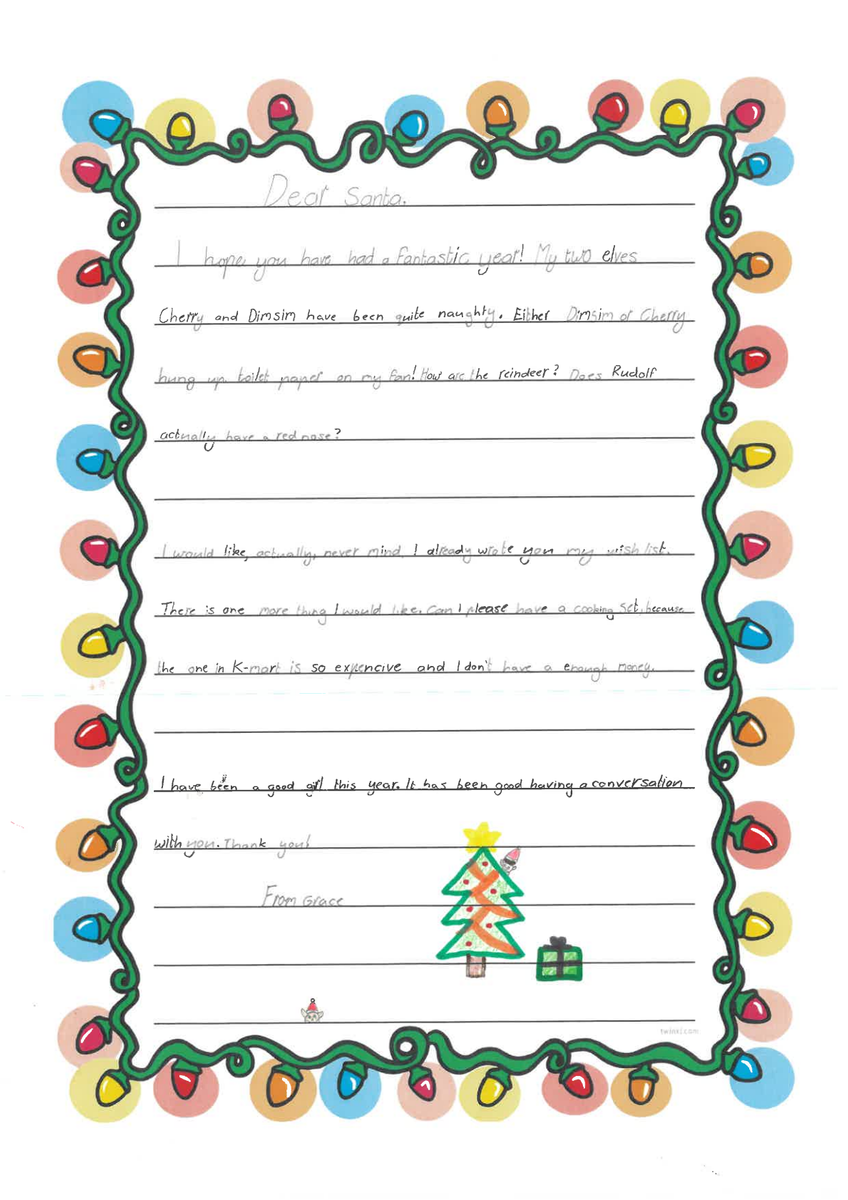 Dear Santa.
I hope you have had a fantastic year! My two elves
Cherry and Dimsim have been quite naughty. Either Dimsim or Cherry
hung up toilet paper on my fan! How are the reindeer? Does Rudolf
actually have a red nose?
I would like, actually, never mind. I already wrote you my wish list.
There is one more thing I would like. Can I please have a cooking set, because
the one in K-mart is so expencive and I don't have a enough money.
I have been a good girl this year. It has been good having a conversation
with you. Thank you!
From Grace
twinkl.com